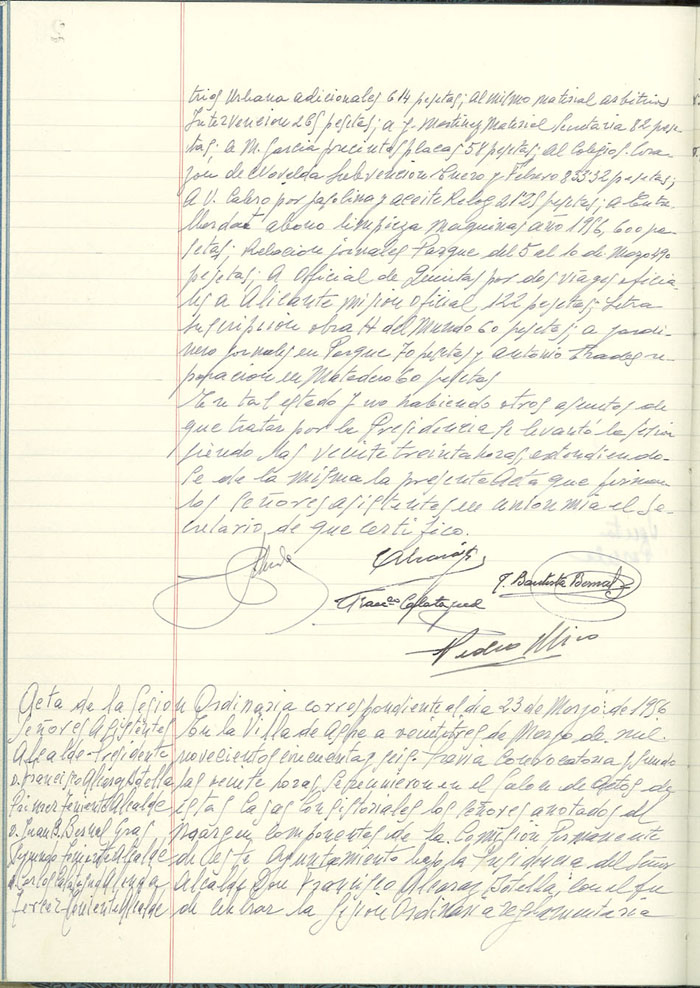 trios Urbana adicionales 614 pesetas; al mismo material arbitrios
Intervencion 265 pesetas; a J. Martinez Material Secretaria 82 pese-
tas; a M. Garcia precintos placas 58 pesetas; al Colegio S. Cora-
zon de Novelda Subvencion Enero y Febrero 833'32 pesetas;
A V. Calero por gasolina y aceite Reloj 21'25 pesetas; a
abono limpieza maquinas año 1956, 600 pe-
setas; Relacion jornales Parque del 5 al 10 de Marzo 490
pesetas; A Oficial de Quintas por dos viages oficia-
les a Alicante mision oficial 122 pesetas; Letra
suscripcion obra H del Mundo 60 pesetas; a jardi-
nero jornales en Parque 70 pesetas y Antonio Prades re-
paracion en Matadero 60 pesetas
En tal estado y no habiendo otros asuntos de
que tratar por la Presidencia se levantó la sesion
siendo las veinte treinta horas, extendiendo-
se de la misma la presente Acta que firman
los Señores asistentes en union mia el Se-
cretario, de que certifico.
J. Bautista Bernal
Franco Calatayud
Pedro Mira
Acta de la Sesion Ordinaria correspondiente al dia 23 de Marzo de 1956
Señores Asistentes
Alcalde-Presidente
D. Francisco Alcaraz Botella
Primer Teniente Alcalde
D. Juan B. Bernal Gras
Segundo Teniente Alcalde
D. Carlos Calatayud Alenda
Tercer Teniente Alcalde
En la Villa de Aspe a veintitres de Marzo de mil
novecientos cincuenta y seis. Previa Convocatoria y siendo
las veinte horas se reunieron en el Salon de Actos de
estas Casas Consistoriales los señores anotados al
margen componentes de la Comision Permanente
de este Ayuntamiento bajo la Presidencia del Señor
Alcalde Don Francisco Alcaraz Botella, con el fin
de celebrar la Sesion Ordinaria reglamentaria